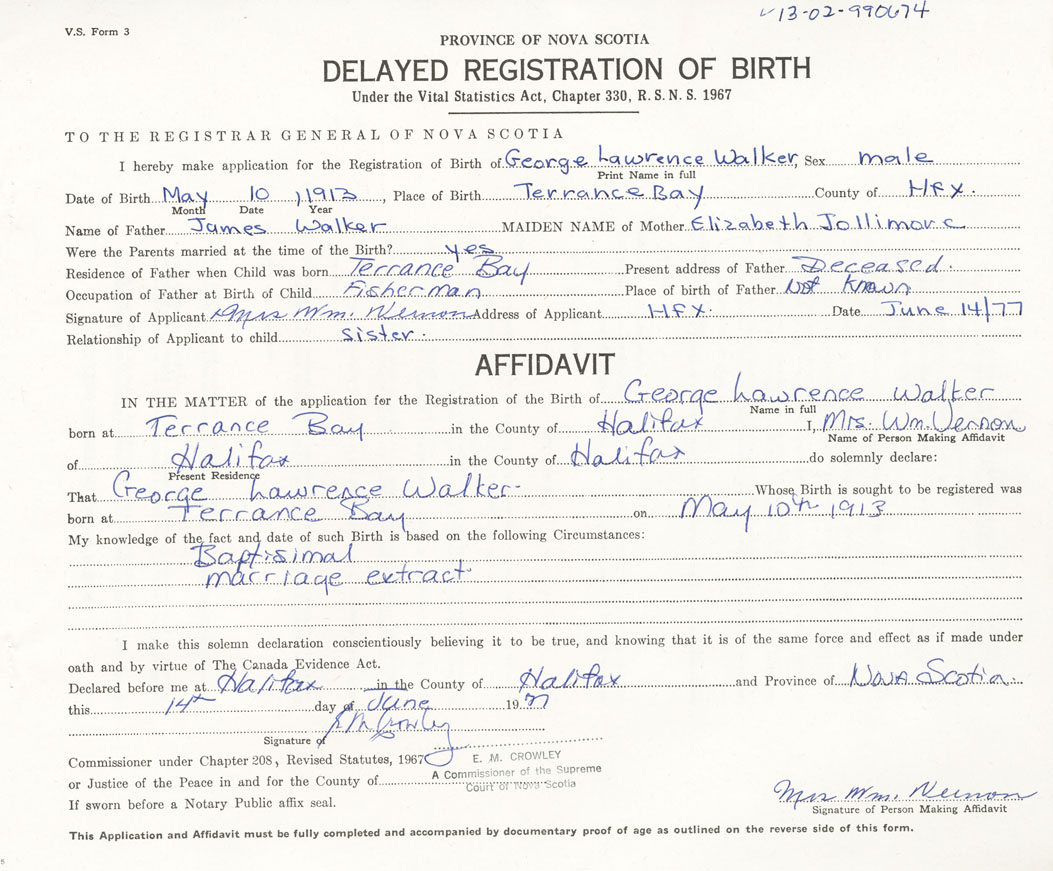 ✓13-02-990674
V.S. Form 3
PROVINCE OF NOVA SCOTIA
DELAYED REGISTRATION OF BIRTH
Under the Vital Statistics Act, Chapter 330, R. S. N. S. 1967
TO THE REGISTRAR GENERAL OF NOVA SCOTIA
I hereby make application for the Registration of Birth of George Lawrence Walker, Sex male
Print Name in full
Date of Birth May 10, 1913, Place of Birth Terrance Bay County of Hfx.
Month Date Year
Name of Father James Walker MAIDEN NAME of Mother Elizabeth Jollimore
Were the Parents married at the time of the Birth? yes
Residence of Father when Child was born Terrance Bay Present address of Father Deceased.
Occupation of Father at Birth of Child Fisherman Place of birth of Father Not Known
Signature of Applicant Mrs Wm. Vernon Address of Applicant HFX. Date June 14/77
Relationship of Applicant to child sister.
AFFIDAVIT
IN THE MATTER of the application for the Registration of the Birth of George Lawrence Walker
Name in full
born at Terrance Bay in the County of Halifax I, Mrs. Wm. Vernon
Name of Person Making Affidavit
of Halifax in the County of Halifax do solemnly declare:
Present Residence
That George Lawrence Walker Whose Birth is sought to be registered was
born at Terrance Bay on May 10th 1913
My knowledge of the fact and date of such Birth is based on the following Circumstances:
Baptisimal
marriage extract
I make this solemn declaration conscientiously believing it to be true, and knowing that it is of the same force and effect as if made under
oath and by virtue of The Canada Evidence Act.
Declared before me at Halifax in the County of Halifax and Province of Nova Scotia
this 14th day of June 1977
E M Crowley
Signature of
Commissioner under Chapter 208, Revised Statutes, 1967
E. M. CROWLEY
or Justice of the Peace in and for the County of
A Commissioner of the Supreme
Court of Nova Scotia
If sworn before a Notary Public affix seal.
Mrs Wm. Vernon
Signature of Person Making Affidavit
This Application and Affidavit must be fully completed and accompanied by documentary proof of age as outlined on the reverse side of this form.
5